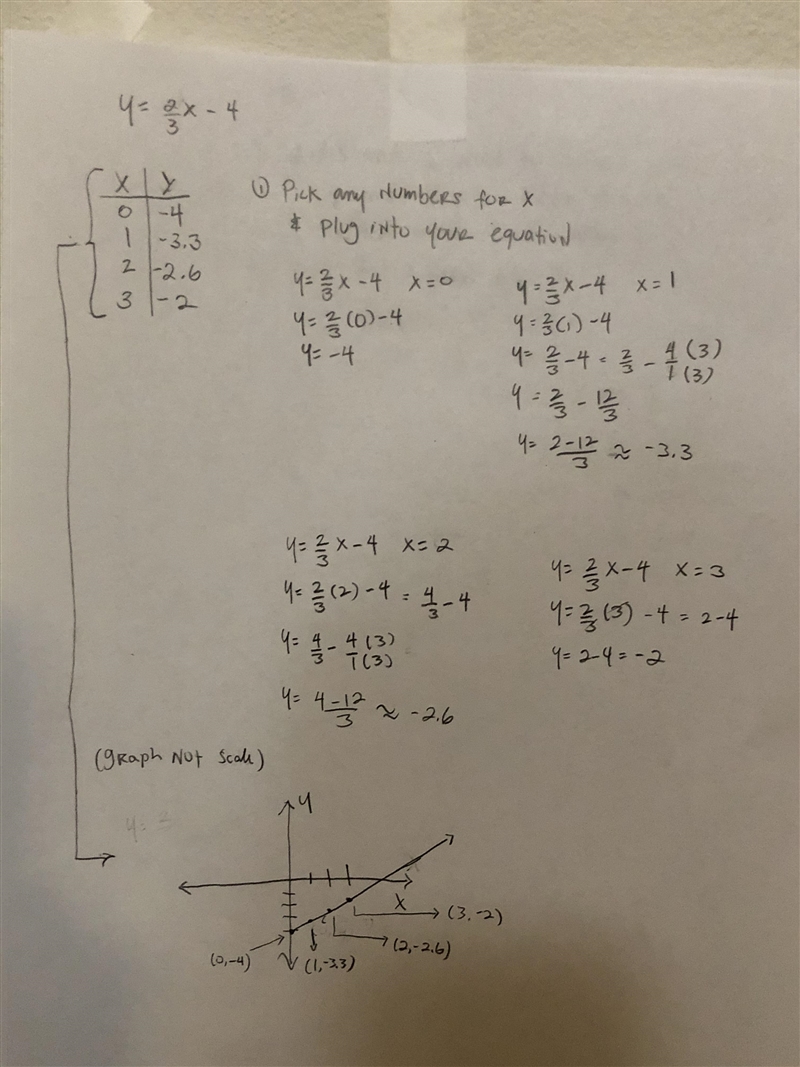 y = 2/3 x - 4
x | y
0 | -4
1 | -3.3
2 | -2.6
3 | -2
① Pick any numbers for x
& plug into your equation
y = 2/3 x - 4 x = 0
y = 2/3 (0) - 4
y = -4
y = 2/3 x - 4 x = 1
y = 2/3 (1) - 4
y = 2/3 - 4 = 2/3 - 4/1 (3)/(3)
y = 2/3 - 12/3
y = 2-12/3 ≈ -3.3
y = 2/3 x - 4 x = 2
y = 2/3 (2) - 4 = 4/3 - 4
y = 4/3 - 4(3)/1(3)
y = 4-12/3 ≈ -2.6
y = 2/3 x - 4 x = 3
y = 2/3 (3) - 4 = 2-4
y = 2-4 = -2
(graph Not Scale)
y
x
(3,-2)
(2,-2.6)
(1,-3.3)
(0,-4)